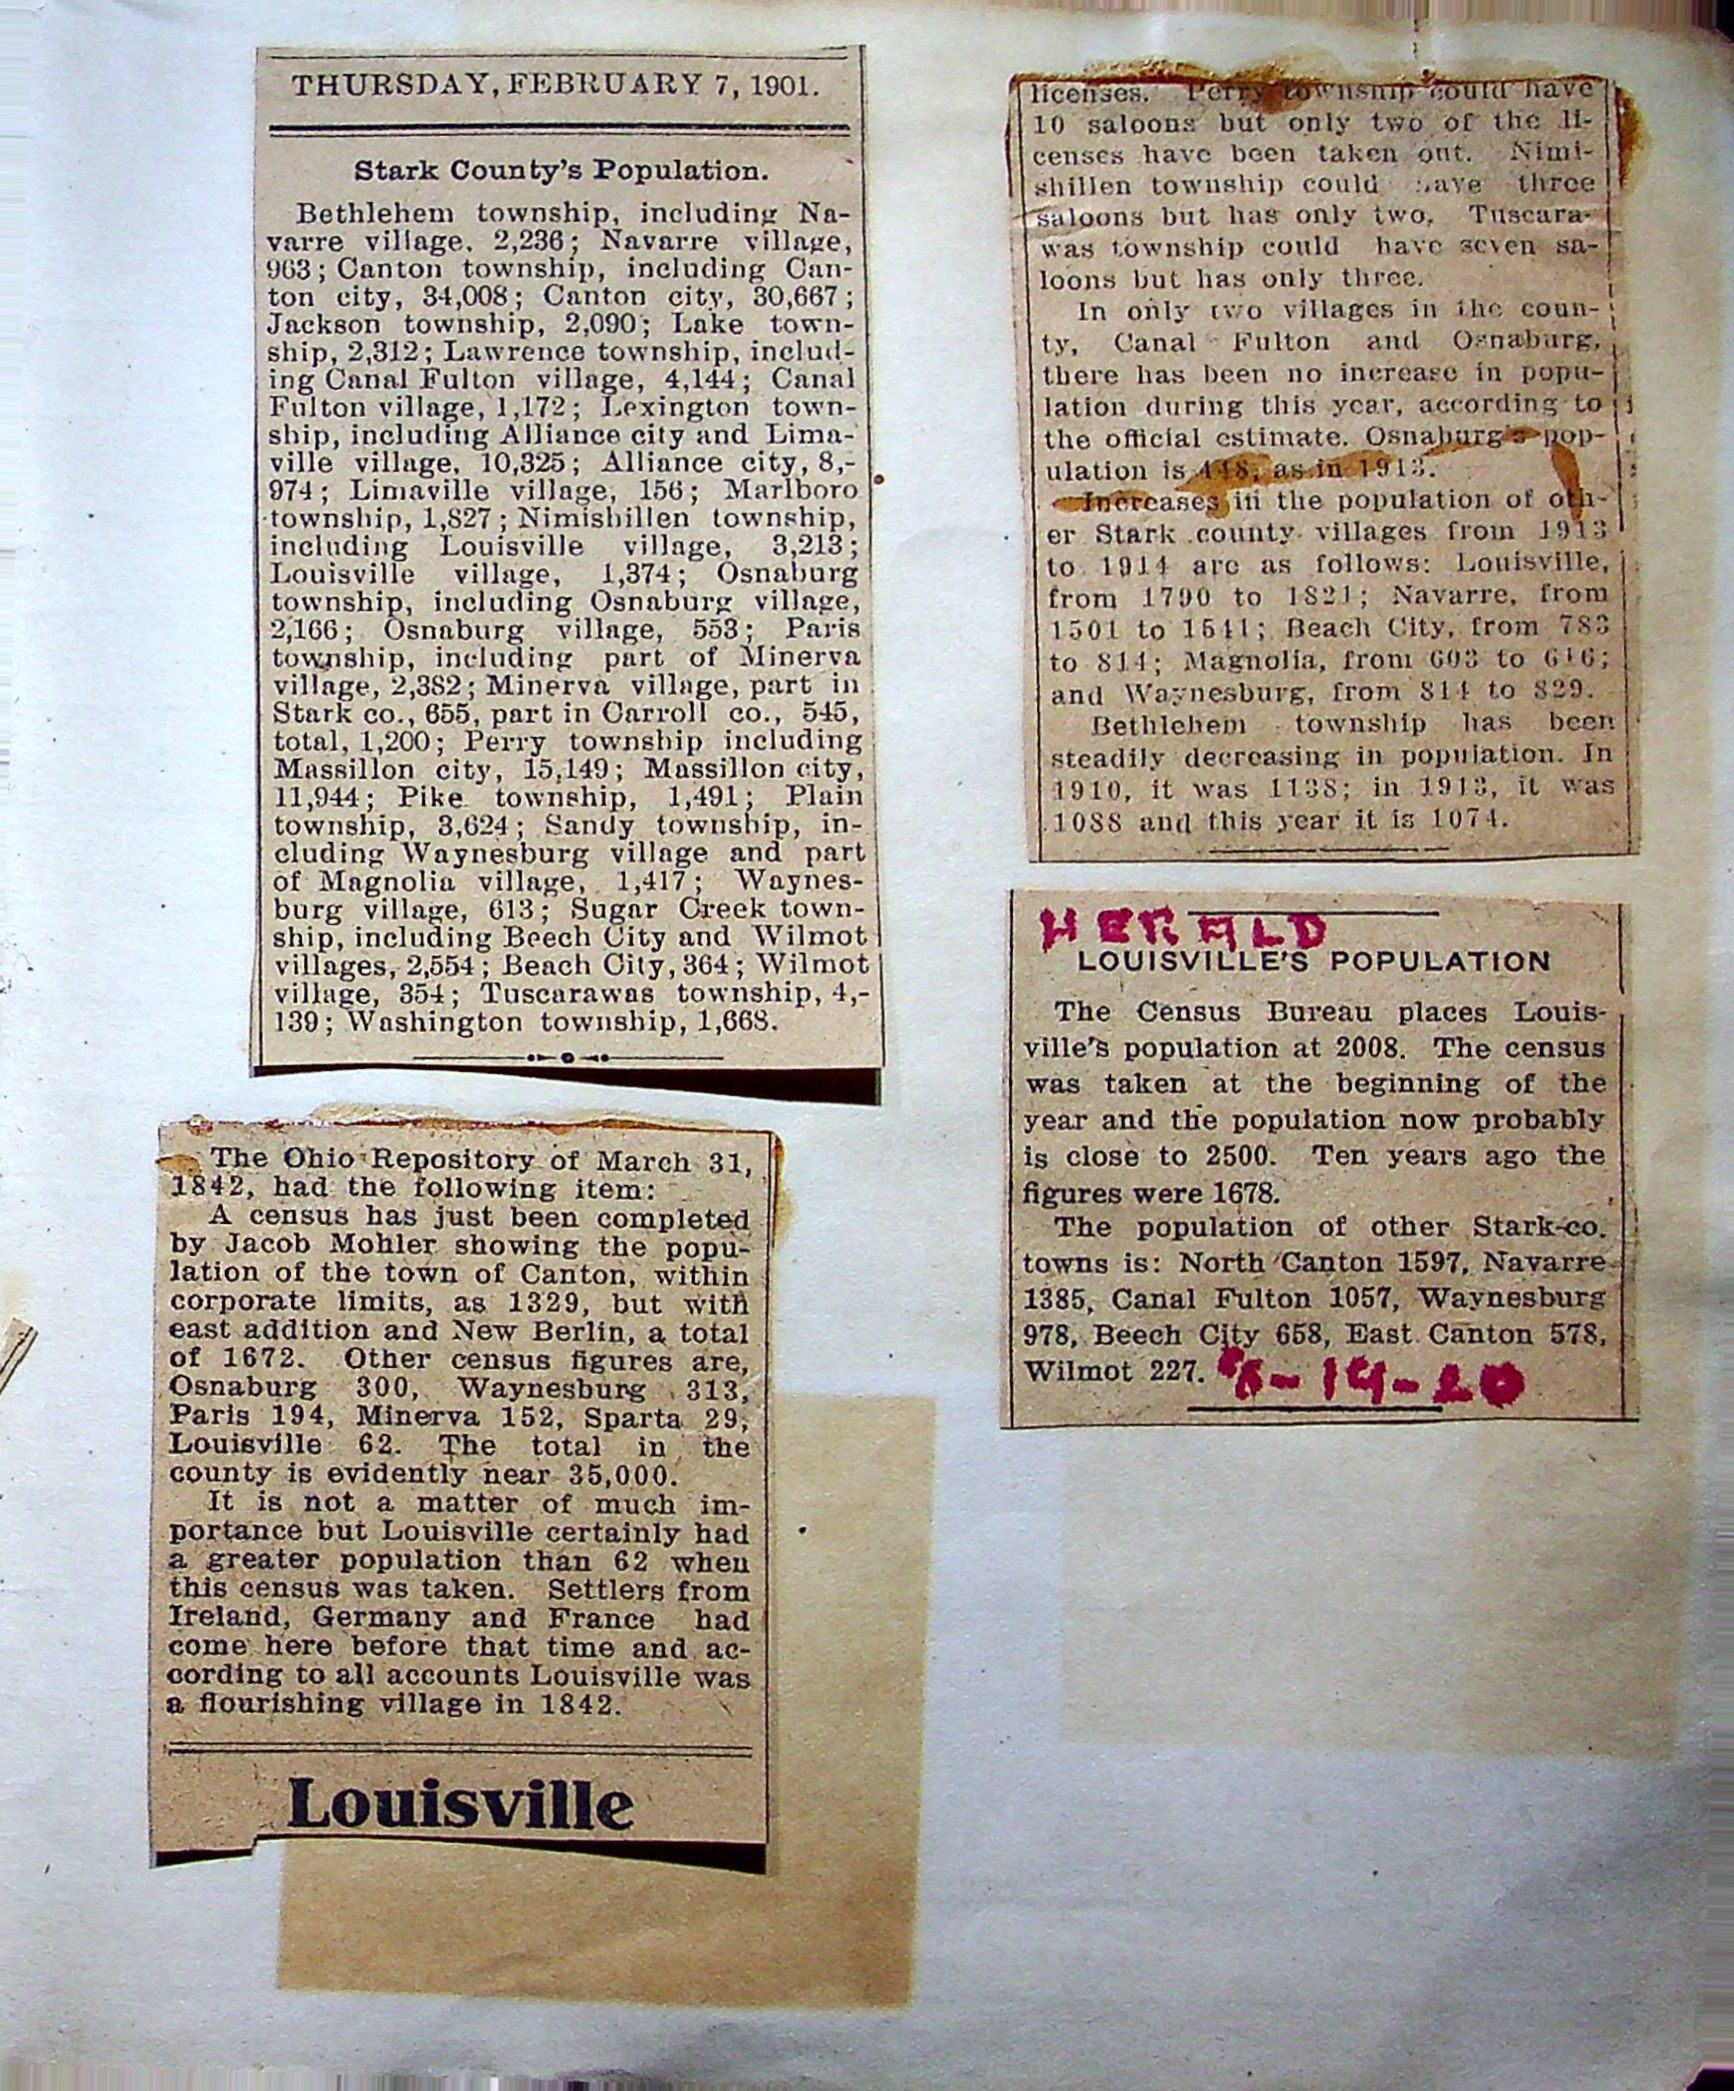 THURSDAY, FEBRUARY 7, 1901.
Stark County's Population.
Bethlehem township, including Na-
varre village, 2,236; Navarre village,
963; Canton township, including Can-
ton city, 34,008; Canton city, 30,667;
Jackson township, 2,090; Lake town-
ship, 2,312; Lawrence township, includ-
ing Canal Fulton village, 4,144; Canal
Fulton village, 1,172; Lexington town-
ship, including Alliance city and Lima-
ville village, 10,325; Alliance city, 8,-
974; Limaville village, 156; Marlboro
township, 1,827; Nimishillen township,
including Louisville village, 3,213;
Louisville village, 1,374; Osnaburg
township, including Osnaburg village,
2,166; Osnaburg village, 553; Paris
township, including part of Minerva
village, 2,382; Minerva village, part in
Stark co., 655, part in Carroll co., 545,
total, 1,200; Perry township including
Massillon city, 15,149; Massillon city,
11,944; Pike township, 1,491; Plain
township, 3,624; Sandy township, in-
cluding Waynesburg village and part
of Magnolia village, 1,417; Waynes-
burg village, 613; Sugar Creek town-
ship, including Beech City and Wilmot
villages, 2,554; Beach City, 364; Wilmot
village, 354; Tuscarawas township, 4,-
139; Washington township, 1,668.
The Ohio Repository of March 31,
1842, had the following item:
A census has just been completed
by Jacob Mohler showing the popu-
lation of the town of Canton, within
corporate limits, as 1329, but with
east addition and New Berlin, a total
of 1672. Other census figures are,
Osnaburg 300, Waynesburg 313,
Paris 194, Minerva 152, Sparta 29,
Louisville 62. The total in the
county is evidently near 35,000.
It is not a matter of much im-
portance but Louisville certainly had
a greater population than 62 when
this census was taken. Settlers from
Ireland, Germany and France had
come here before that time and ac-
cording to all accounts Louisville was
a flourishing village in 1842.
Louisville
licenses. Perry township could have
10 saloons but only two of the li-
censes have been taken out. Nimi-
shillen township could have three
saloons but has only two. Tuscara-
was township could have seven sa-
loons but has only three.
In only two villages in the coun-
ty, Canal Fulton and Osnaburg,
there has been no increase in popu-
lation during this year, according to
the official estimate. Osnaburg's pop-
ulation is 448, as in 1913.
Increases in the population of oth-
er Stark county villages from 1913
to 1914 are as follows: Louisville,
from 1790 to 1821; Navarre, from
1501 to 1541; Beach City, from 783
to 814; Magnolia, from 603 to 616;
and Waynesburg, from 814 to 829.
Bethlehem township has been
steadily decreasing in population. In
1910, it was 1138; in 1913, it was
1088 and this year it is 1074.
HERALD
LOUISVILLE'S POPULATION
The Census Bureau places Louis-
ville's population at 2008. The census
was taken at the beginning of the
year and the population now probably
is close to 2500. Ten years ago the
figures were 1678.
The population of other Stark-co.
towns is: North Canton 1597, Navarre
1385, Canal Fulton 1057, Waynesburg
978, Beech City 658, East Canton 578,
Wilmot 227.